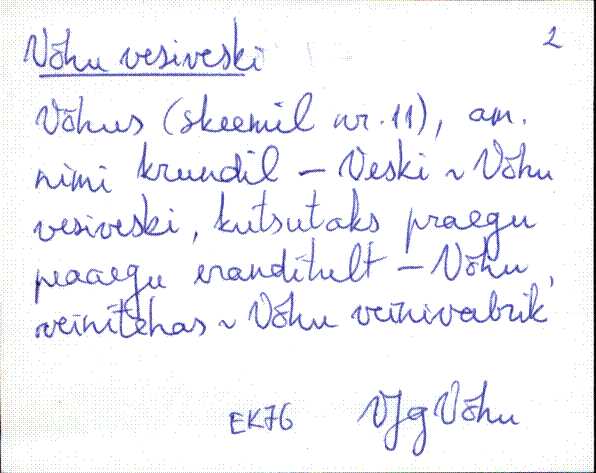 Võhu vesiveski 2
Võhus (skeemil nr. 11), am.
nimi krundil – Veski ~ Võhu
vesiveski, kutsutaks praegu
peaaegu eranditult – Võhu
veinitehas ~ Võhu veinivabrik
EK76 VJg Võhu